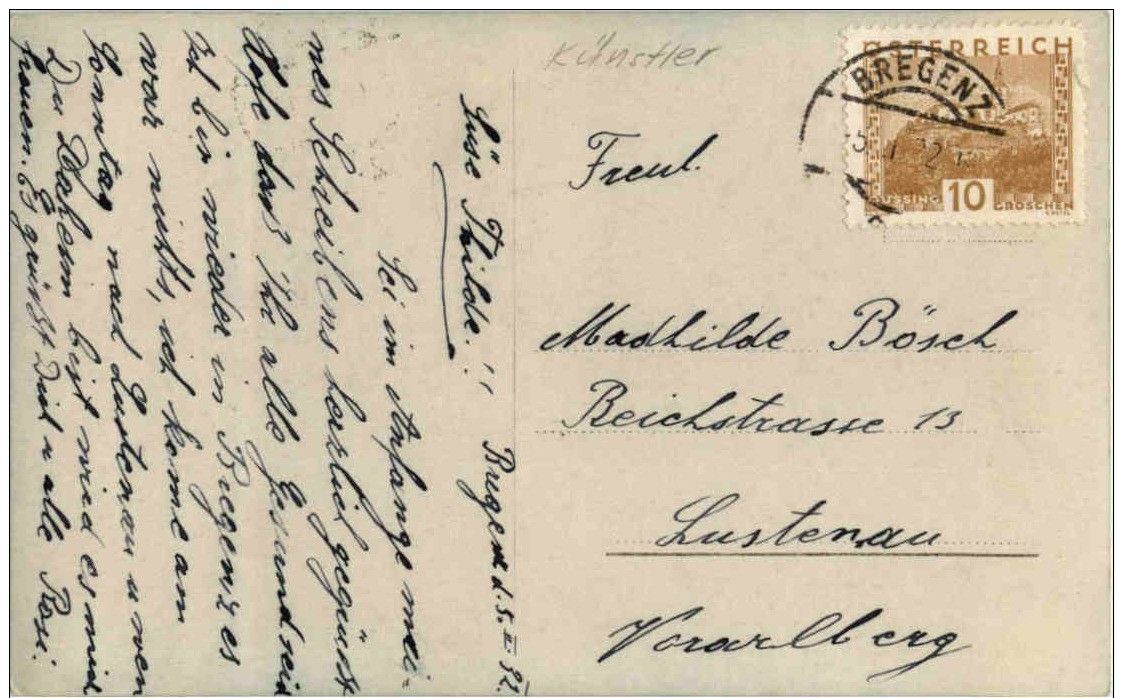 Süse Thilde!! Bregenz d. 5. II 32.
Sei im Anfange mei-
nes Schreibens herzlich gegrüsst
hofe das ihr alle Gesund seid
Ich bin wieder in Bregenz es
war nichts, ich kome am
Sonntag nach Lustenau u wen
Du Daheim bist wird es mich
freuen. Es grüsst Dich u alle Rosi.
Künstler
ÖSTERREICH
BREGENZ
10
GROSCHEN
Freul.
Madhilde Bösch
Reichstrasse 13
Lustenau
Vorarlberg